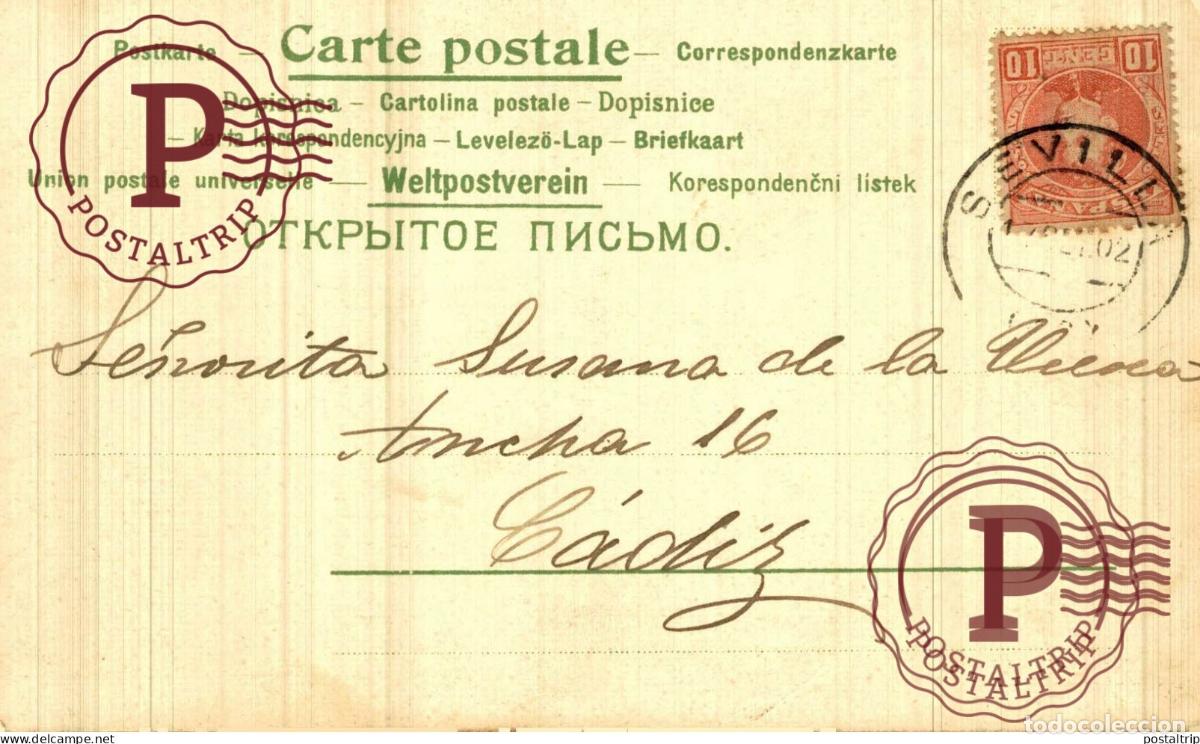 Postkarte — Carte postale — Correspondenzkarte
Dopisnica — Cartolina postale — Dopisnice
— Karta korespondencyjna — Levelező-Lap — Briefkaart
Union postale universelle — Weltpostverein — Korespondenčni lístek
ОТКРЫТОЕ ПИСЬМО.
10 CENT. 10
SEVILLA
02
Señorita Susana de la
Ancha 16
Cádiz
P
POSTALTRIP
P
POSTALTRIP
POSTALTRIP
todocoleccion
www.delcampe.net
postaltrip